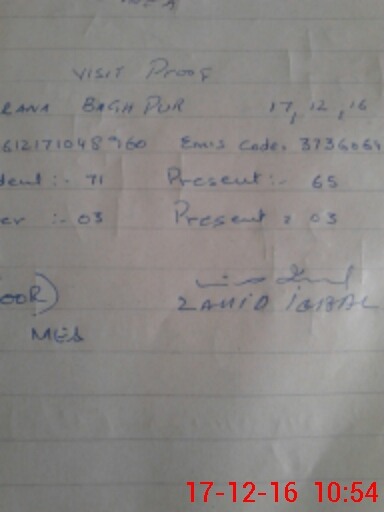 VISIT Proof
RANA BAGH PUR 17, 12, 16
612171048960 Emis code. 3736064
dent :- 71 Present :- 65
er :- 03 Present : 03
OOR)
ZAHID IQBAL
MEA
17-12-16 10:54